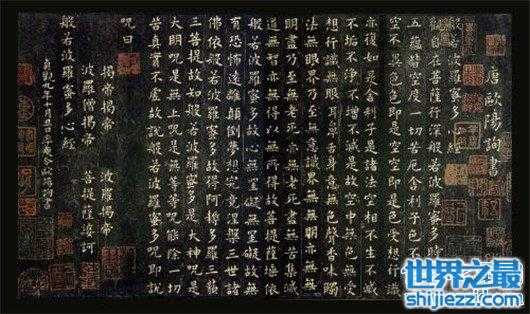 唐歐陽詢書
般若波羅蜜多心經
觀自在菩薩行深般若波羅蜜多時照見
五蘊皆空度一切苦厄舍利子色不異空
空不異色色即是空空即是色受想行識
亦復如是舍利子是諸法空相不生不滅
不垢不淨不增不減是故空中無色無受
想行識無眼耳鼻舌身意無色聲香味觸
法無眼界乃至無意識界無無明亦無無
明盡乃至無老死亦無老死盡無苦集滅
道無智亦無得以無所得故菩提薩埵依
般若波羅蜜多故心無罣礙無罣礙故無
有恐怖遠離顛倒夢想究竟涅槃三世諸
佛依般若波羅蜜多故得阿耨多羅三藐
三菩提故知般若波羅蜜多是大神呪是
大明呪是無上呪是無等等呪能除一切
苦真實不虛故說般若波羅蜜多呪即說
呪曰
揭帝揭帝 波羅揭帝
波羅僧揭帝 菩提薩婆訶
般若波羅蜜多心經
貞觀九年十月旦日率更令歐陽詢書
世界之最
shijiezz.com